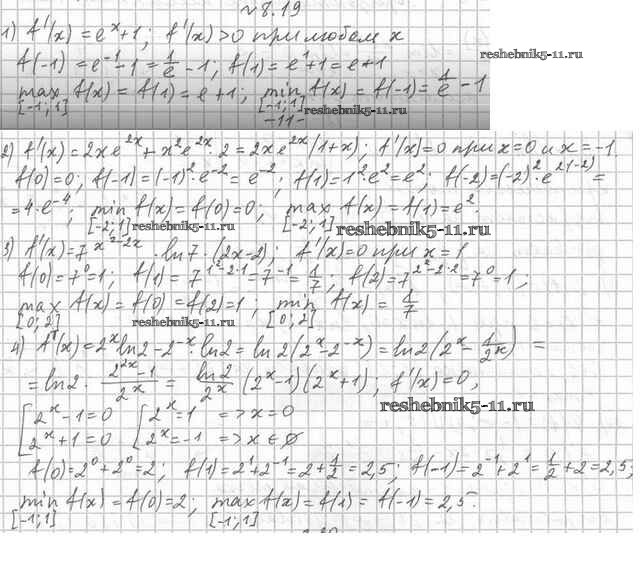 №8.19
1) f'(x) = e^x + 1; f'(x) > 0 при любом x
f(-1) = e^-1 - 1 = 1/e - 1; f(1) = e^1 + 1 = e + 1
reshebnik5-11.ru
max f(x) = f(1) = e + 1; min f(x) = f(-1) = 1/e - 1
[-1;1] [-1;1]
reshebnik5-11.ru
-11-
2) f'(x) = 2xe^2x + x^2 e^2x · 2 = 2xe^2x(1+x); f'(x) = 0 при x = 0 и x = -1
f(0) = 0; f(-1) = (-1)^2 · e^-2 = e^-2; f(1) = 1^2 e^2 = e^2; f(-2) = (-2)^2 · e^2(-2) =
= 4 · e^-4; min f(x) = f(0) = 0; max f(x) = f(1) = e^2.
[-2;1] reshebnik5-11.ru [-2;1] reshebnik5-11.ru
3) f'(x) = 7^x^2-2x · ln7 · (2x-2); f'(x) = 0 при x = 1
f(0) = 7^0 = 1; f(1) = 7^1^2-2·1 = 7^-1 = 1/7; f(2) = 7^2^2-2·2 = 7^0 = 1;
max f(x) = f(0) = f(2) = 1; min f(x) = 1/7
[0;2] reshebnik5-11.ru [0;2]
4) f'(x) = 2^x ln2 - 2^-x · ln2 = ln2(2^x - 2^-x) = ln2(2^x - 1/2^x) =
= ln2 · 2^2x - 1/2^x = ln2/2^x (2^x - 1)(2^x + 1); f'(x) = 0,
reshebnik5-11.ru
[2^x - 1 = 0 [2^x = 1 => x = 0
2^x + 1 = 0 2^x = -1 => x ∈ ∅
f(0) = 2^0 + 2^0 = 2; f(1) = 2^1 + 2^-1 = 2 + 1/2 = 2,5; f(-1) = 2^-1 + 2^1 = 1/2 + 2 = 2,5;
min f(x) = f(0) = 2; max f(x) = f(1) = f(-1) = 2,5.
[-1;1] [-1;1]